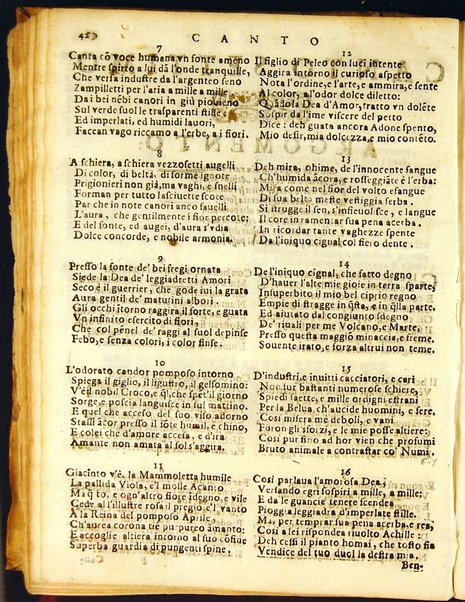 CANTO
7
Canta cō voce humana vn fonte ameno
Mentre spirto a lui dà l'onde tranquille,
Che versa industre da l'argenteo seno
Zampilletti per l'aria a mille a mille
Da i bei nēbi canori in giù piovieno
Sul verde suol le trasparenti stille:
Ed imperlati, ed humidi lauori,
Faccean vago riccamo a l'erbe, a i fiori.
8
A schiera, a schiera vezzosetti augelli
Di color, di beltà, di forme ignote
Prigionieri non già, ma vaghi, e snelli
Forman per tutto lasciuette scote
Par che in note canori anco fauelli
L'aura, che gentilmente i fior percote;
E del fonte, ed augei, d'aura s'vdia
Dolce concorde, e nobile armonia.
9
Presso la fonte de' bei fregi ornata
Siede la Dea de' leggiadretti Amori
Seco è il guerrier, che gode iui la grata
Aura gentil de' maturini albori.
Gli occhi itorno raggira il forte, e guata
Vn infinito esercito di fiori,
Che col pēnel de' raggi al suol depinse
Febo, e senza colori, i color finse.
10
L'odorato candor pomposo intorno
Spiega il giglio, il ligustro, il gelsomino:
V'è il nobil Croco, e q̄l, che spēt'il giorno
Sorge, e poscia languisce in sul mattino.
E quel che acceso del suo viso adorno
Stassi àcor presso il fōte humil, e chino,
E colei che d'amore accesa, e d'ira
Amante non amata al sol s'aggira.
11
Giacinto v'è, la Mammoletta humile
La pallida Viola, e'l molle Acanto
Ma q̄to, e ogn'altro fiore idegno, e vile
Cede al l'illustre rosa il pregio, e'l vanto
A la Reina del pomposo Aprile,
Ch'aurea corona tiē pu'pureo amanto;
E accoglie altiera intorno al suo cōfine
Superba guardia di pungenti spine.
12
Il figlio di Peleo con luci intente
Aggira intorno il curioso aspetto
Nota l'ordine, e l'arte, e ammira, e sente
Al color, al l'odor dolce diletto:
Quādo la Dea d'Amor, tratto vn dolēte
Sospir da l'ime viscere del petto
Dice: deh guata ancora Adone spento,
Mio desir, mia dolcezza, e mio contēto.
13
Deh mira, ohime, de l'innocente sangue
Ch'humida àcora, e rosseggiāte è l'erba:
Mira come nel fior del volto esangue
Di sua beltà meste vestiggia serba.
Si strugge il sen, s'infieuolisce, e langue
Il core in rimembrar sua pena acerba.
In ricordar tante vaghezze spente
Da l'iniquo cignal col fiero dente.
14
De l'iniquo cignal, che fatto degno
D'hauer l'alte mie gioie in terra sparte,
Insuperbito il mio bel ciprio regno
Empie di stragge in q̄sta, e in q̄lla parte.
Ed aiutato dal congiunto sdegno
De' riuali per me Volcano, e Marte.
Presso questa maggiō minaccia, e freme.
Souente irato, e forza altrui non teme.
15
D'industri, e inuitti cacciatori, e cari
Non fur bastanti numerose schiere,
Spiedi, saette, e mille ordigni estrani
Per la Belua, ch'aucide huomini, e fere.
Così misera me deboli, e vani
Furon gli sforzi, e le mie posse altiere;
Così pur sino ad hor vien che prosumi
Bruto animale a contrastar co' Numi.
16
Così parlaua l'amorosa Dea;
Versando egri sospiri a mille, a mille;
E da le guancie tenere scendea
Pioggia leggiadra d'imperlate stille.
Ma, per temprar sua pena acerba, e rea,
Così a lei rispondea riuolto Achille:
Deh cessi il pianto homai, che tosto fia
Vendice del tuo duol la destra mia.
Ben-